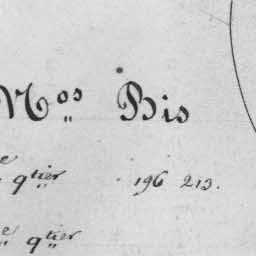 Nos Bis
e qtier 196 213.
e qtier